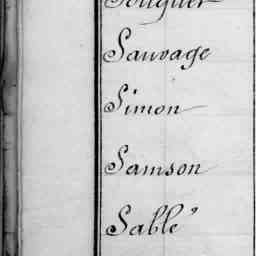 Sauvage
Simon
Samson
Sablé